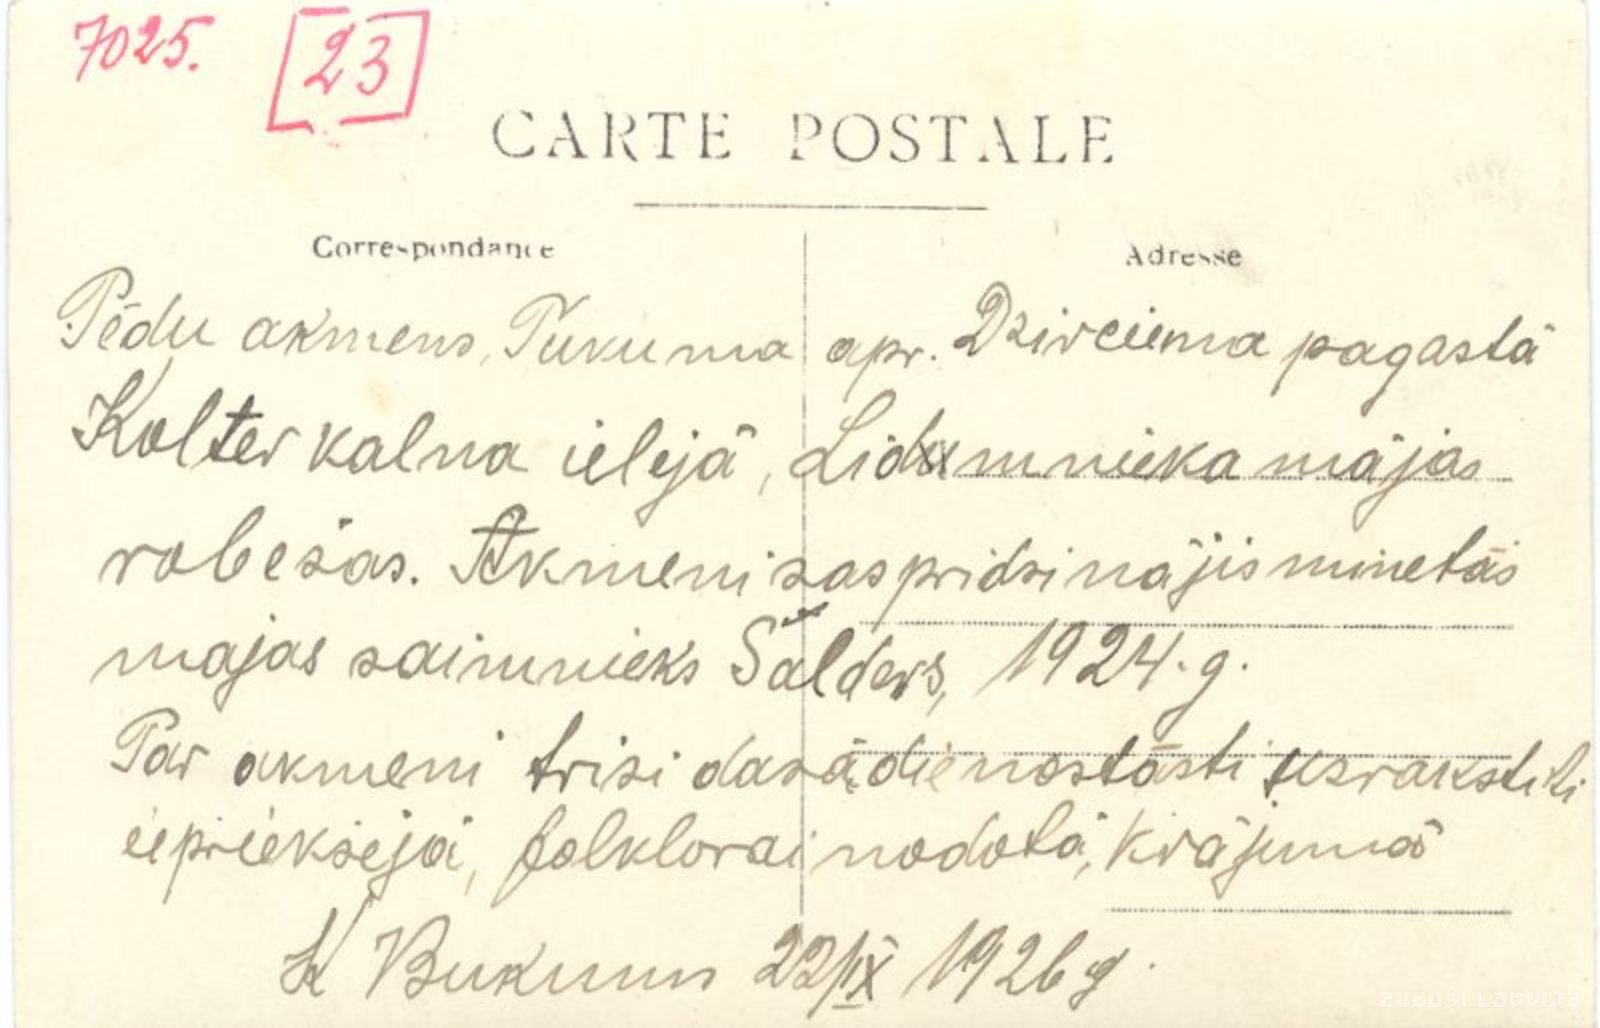 7025. 23
CARTE POSTALE
Correspondance Adresse
Pēdu akmens, Tukuma apr. Dzirciema pagastā
Kolterkalna ielejā, mnieka mājas
robežas. Akmeni sas pridzinājis minetās
majas saimnieks Šalders, 1924. g.
Par akmeni trisi dasādie nostāsti usrakstiti
iepriekšejā, folklorai nodotā, krājumā
K Bukums 22/IX 1926 g.
ZUDUSI LATVIJA